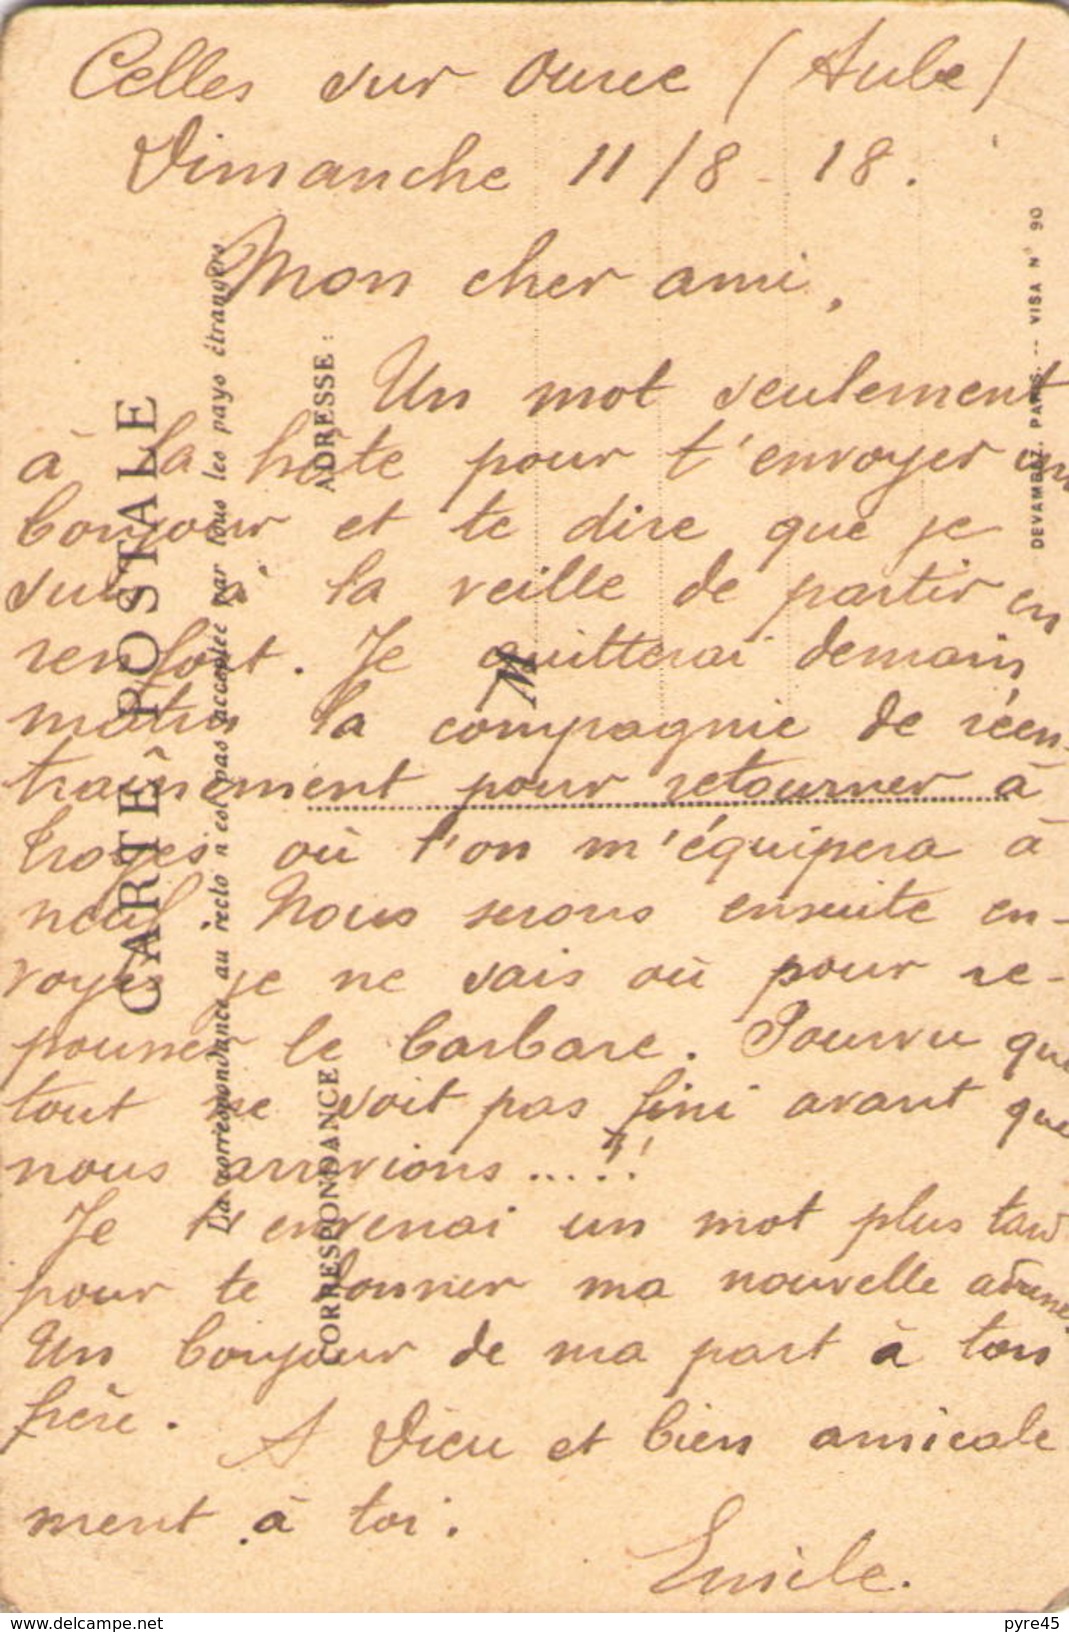 Celles sur Ource (Aube)
Dimanche 11/8-18.
Mon cher ami,
Un mot seulement
à la hâte pour t'envoyer un
bonjour et te dire que je
suis à la veille de partir en
renfort. Je quitterai demain
matin la compagnie de réen-
traînement pour retourner à
Troyes où l'on m'équipera à
neuf. Nous serons ensuite en-
voyés je ne sais où pour re-
pousser le barbare. Pourvu que
tout ne soit pas fini avant que
nous arrivions...!!
Je t'enverrai un mot plus tard
pour te donner ma nouvelle adresse.
Un bonjour de ma part à ton
frère.
A Dieu et bien amicale
ment à toi.
Emile.
CARTE POSTALE
La correspondance au recto n'est pas acceptée par tous les pays étrangers
CORRESPONDANCE
ADRESSE :
M
DEVAMBEZ, PARIS. -- VISA N° 90
www.delcampe.net
pyre45